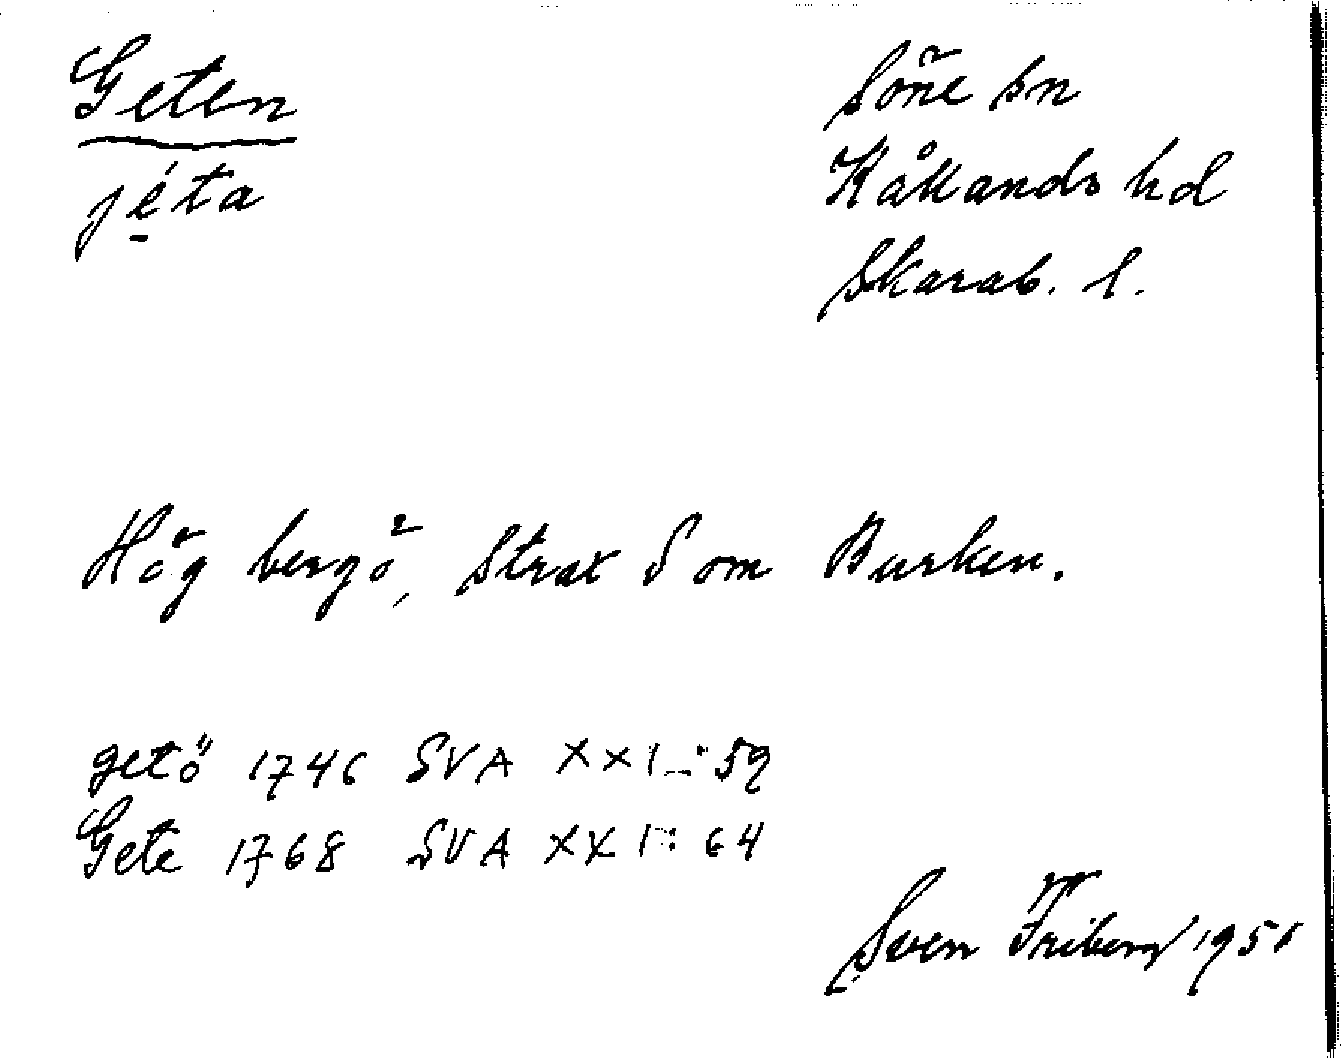 Geten
jéta
Söne sn
Kållands hd
Skarab. l.
Hög bergö, strax S om Burken.
getö 1746 SVA XXI:59
Gete 1768 SVA XXI:64
Sven Friberg 1951